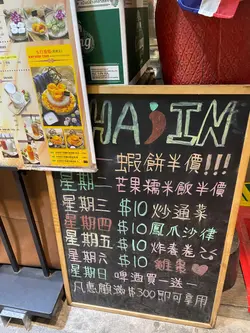 HAJIN
星期一 蝦餅半價!!!
星期二 芒果糯米飯半價
星期三 $10 炒通菜
星期四 $10 鳳爪沙律
星期五 $10 炸春卷
星期六 $10 雞車
星期日 啤酒買一送一
凡惠顧滿$300即可享用